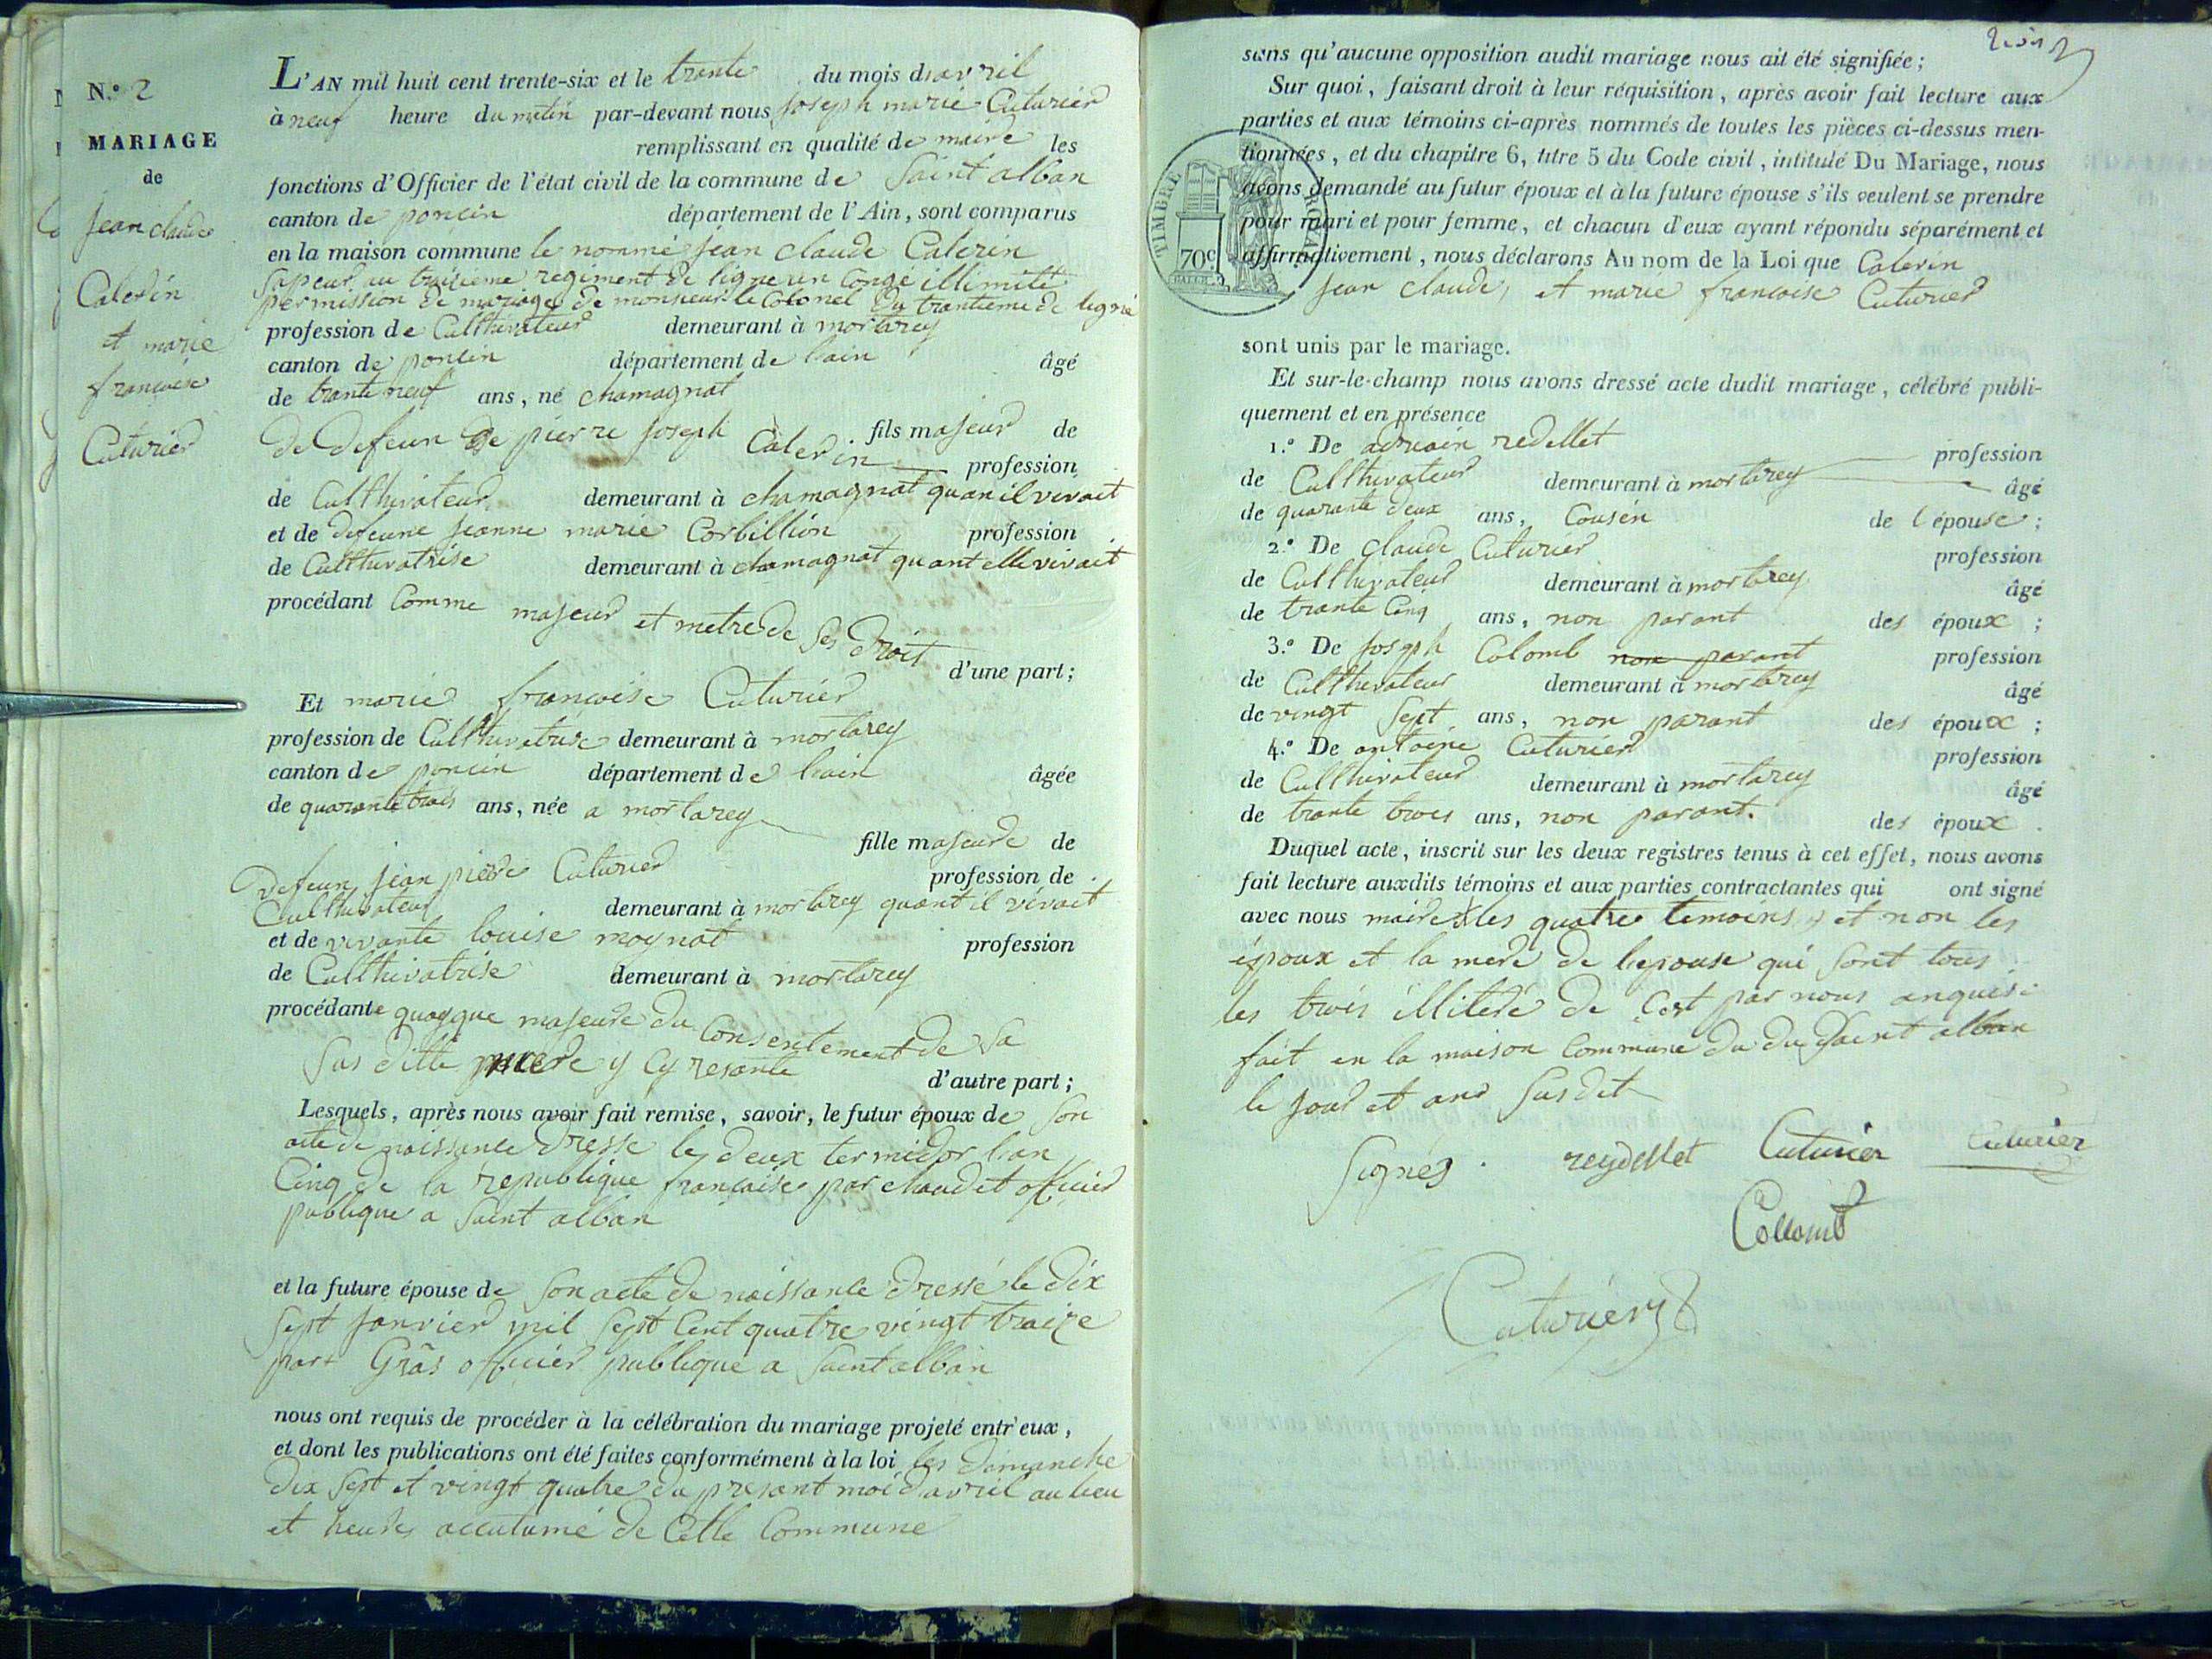 N.º 2
MARIAGE
de
Jean claude
Calerin
et marie
francoise
Cuturier
L'AN mil huit cent trente-six et le trante du mois d'avril
à neuf heure du matin par-devant nous joseph marie Cuturier
remplissant en qualité de maire les
fonctions d'Officier de l'état civil de la commune de Saint alban
canton de poncin département de l'Ain, sont comparus
en la maison commune le nommé jean claude Calerin
Sapeur au troisieme regiment de ligne un Congé illimité
permission de mariage de monsieur le Colonel du trantieme de ligne
profession de Culthivateur demeurant à mortarey
canton de poncin département de lain âgé
de trante neuf ans, né chamagnat
fils majeur de
de defeun de pierre joseph Calerin profession
de Culthivateur demeurant à chamagnat quan il vivait
et de defeune jeanne marie Corbillion profession
de Culthivatrise demeurant à chamagnat quant elle vivait
procédant Comme majeur et metre de Ses droit
d'une part;
Et marie francoise Cuturier
profession de Culthivatrise demeurant à mortarey
canton de poncin département de lain âgée
de quarante trois ans, née a mortarey
fille majeure de
defeun jean pierre Cuturier profession de
Culthivateur demeurant à mortarey quant il vivait
et de vivante louise moynat profession
de Culthivatrise demeurant à mortarey
procédante quoyque majeure du Consentement de Sa
Sus ditte mere y Cy resante
d'autre part;
Lesquels, après nous avoir fait remise, savoir, le futur époux de Son
acte de naissance dressé le deux termidor lan
Cinq de la republique francaise par chaudet officier
publique a Saint alban
et la future épouse de Son acte de naissance dressé le dix
Sept janvier mil Sept Cent quatre vingt traize
part Grâs officier publique a Saint alban
nous ont requis de procéder à la célébration du mariage projeté entr'eux,
et dont les publications ont été faites conformément à la loi les dimanche
dix Sept et vingt quatre du presant moi d'avril au lieu
et heures accutumé de Cette Commune
sans qu'aucune opposition audit mariage nous ait été signifiée;
Sur quoi, faisant droit à leur réquisition, après avoir fait lecture aux
parties et aux témoins ci-après nommés de toutes les pièces ci-dessus men-
tionnées, et du chapitre 6, titre 5 du Code civil, intitulé Du Mariage, nous
avons demandé au futur époux et à la future épouse s'ils veulent se prendre
pour mari et pour femme, et chacun d'eux ayant répondu séparément et
affirmativement, nous déclarons Au nom de la Loi que Calerin
Jean claude, et marie francoise Cuturier
TIMBRE ROYAL
70c
sont unis par le mariage.
Et sur-le-champ nous avons dressé acte dudit mariage, célébré publi-
quement et en présence
1.º De adriain redellet profession
de Culthivateur demeurant à mortarey âgé
de quarante deux ans, Cousin de l'épouse;
2.º De claude Cuturier profession
de Culthivateur demeurant à mortarey âgé
de trante Cinq ans, non parant des époux;
3.º De joseph Colomb non parant profession
de Culthivateur demeurant à mortarey âgé
de vingt Sept ans, non parant des époux;
4.º De antoine Cuturier profession
de Culthivateur demeurant à mortarey âgé
de trante trois ans, non parant. des époux.
Duquel acte, inscrit sur les deux registres tenus à cet effet, nous avons
fait lecture auxdits témoins et aux parties contractantes qui ont signé
avec nous maire & les quatre temoins, et non les
époux et la mere de lepouse qui Sont tous
les trois illiteré de Cest par nous anquis
fait en la maison Commune du du Saint alban
le jour et and Susdit
Signés. reydellet Cuturier Cuturier
Collomb
Cuturier